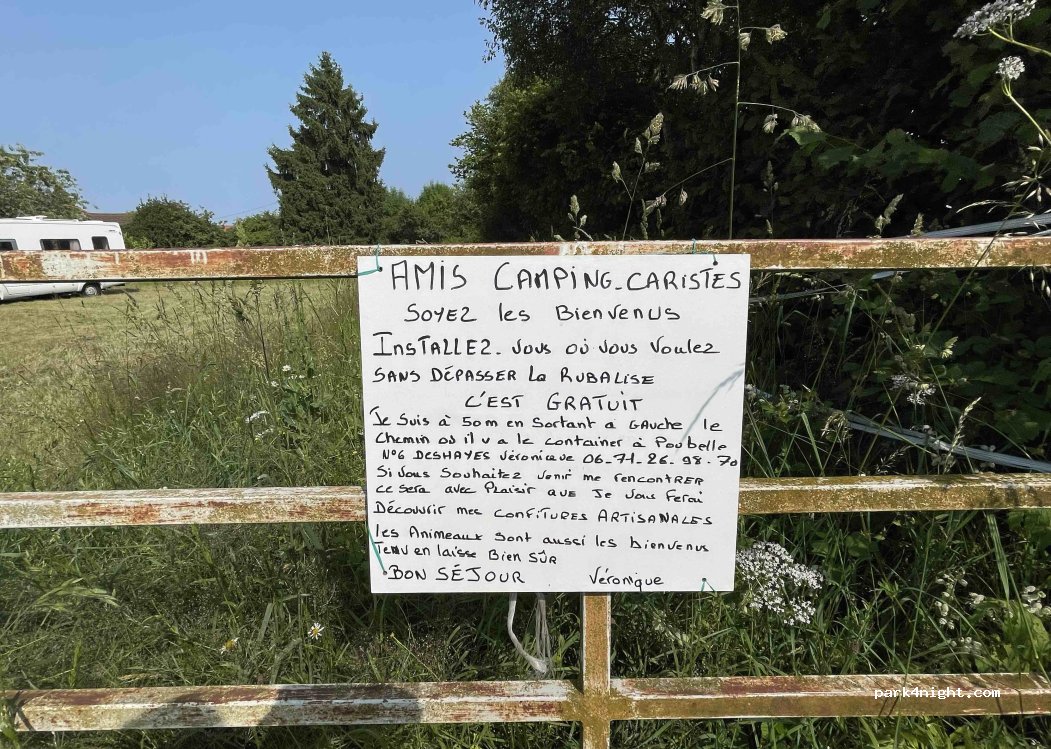 AMIS CAMPING-CARISTES
SOYEZ les BIENVENUS
INSTALLEZ-VOUS OÙ VOUS VOULEZ
SANS DÉPASSER La RUBALISE
C'EST GRATUIT
Je Suis à 50m en Sortant a GAUche le
Chemin où il y a le container à Poubelle
N°6 DESHAYES Véronique 06-71-26-98-70
Si vous Souhaitez venir me rencontrer
ce sera avec Plaisir que Je vous Ferai
Découvrir mes CONFITURES ARTISANALES
les Animeaux Sont aussi les bienvenus
Tenu en laisse Bien SÛR
BON SÉJOUR Véronique
park4night.com